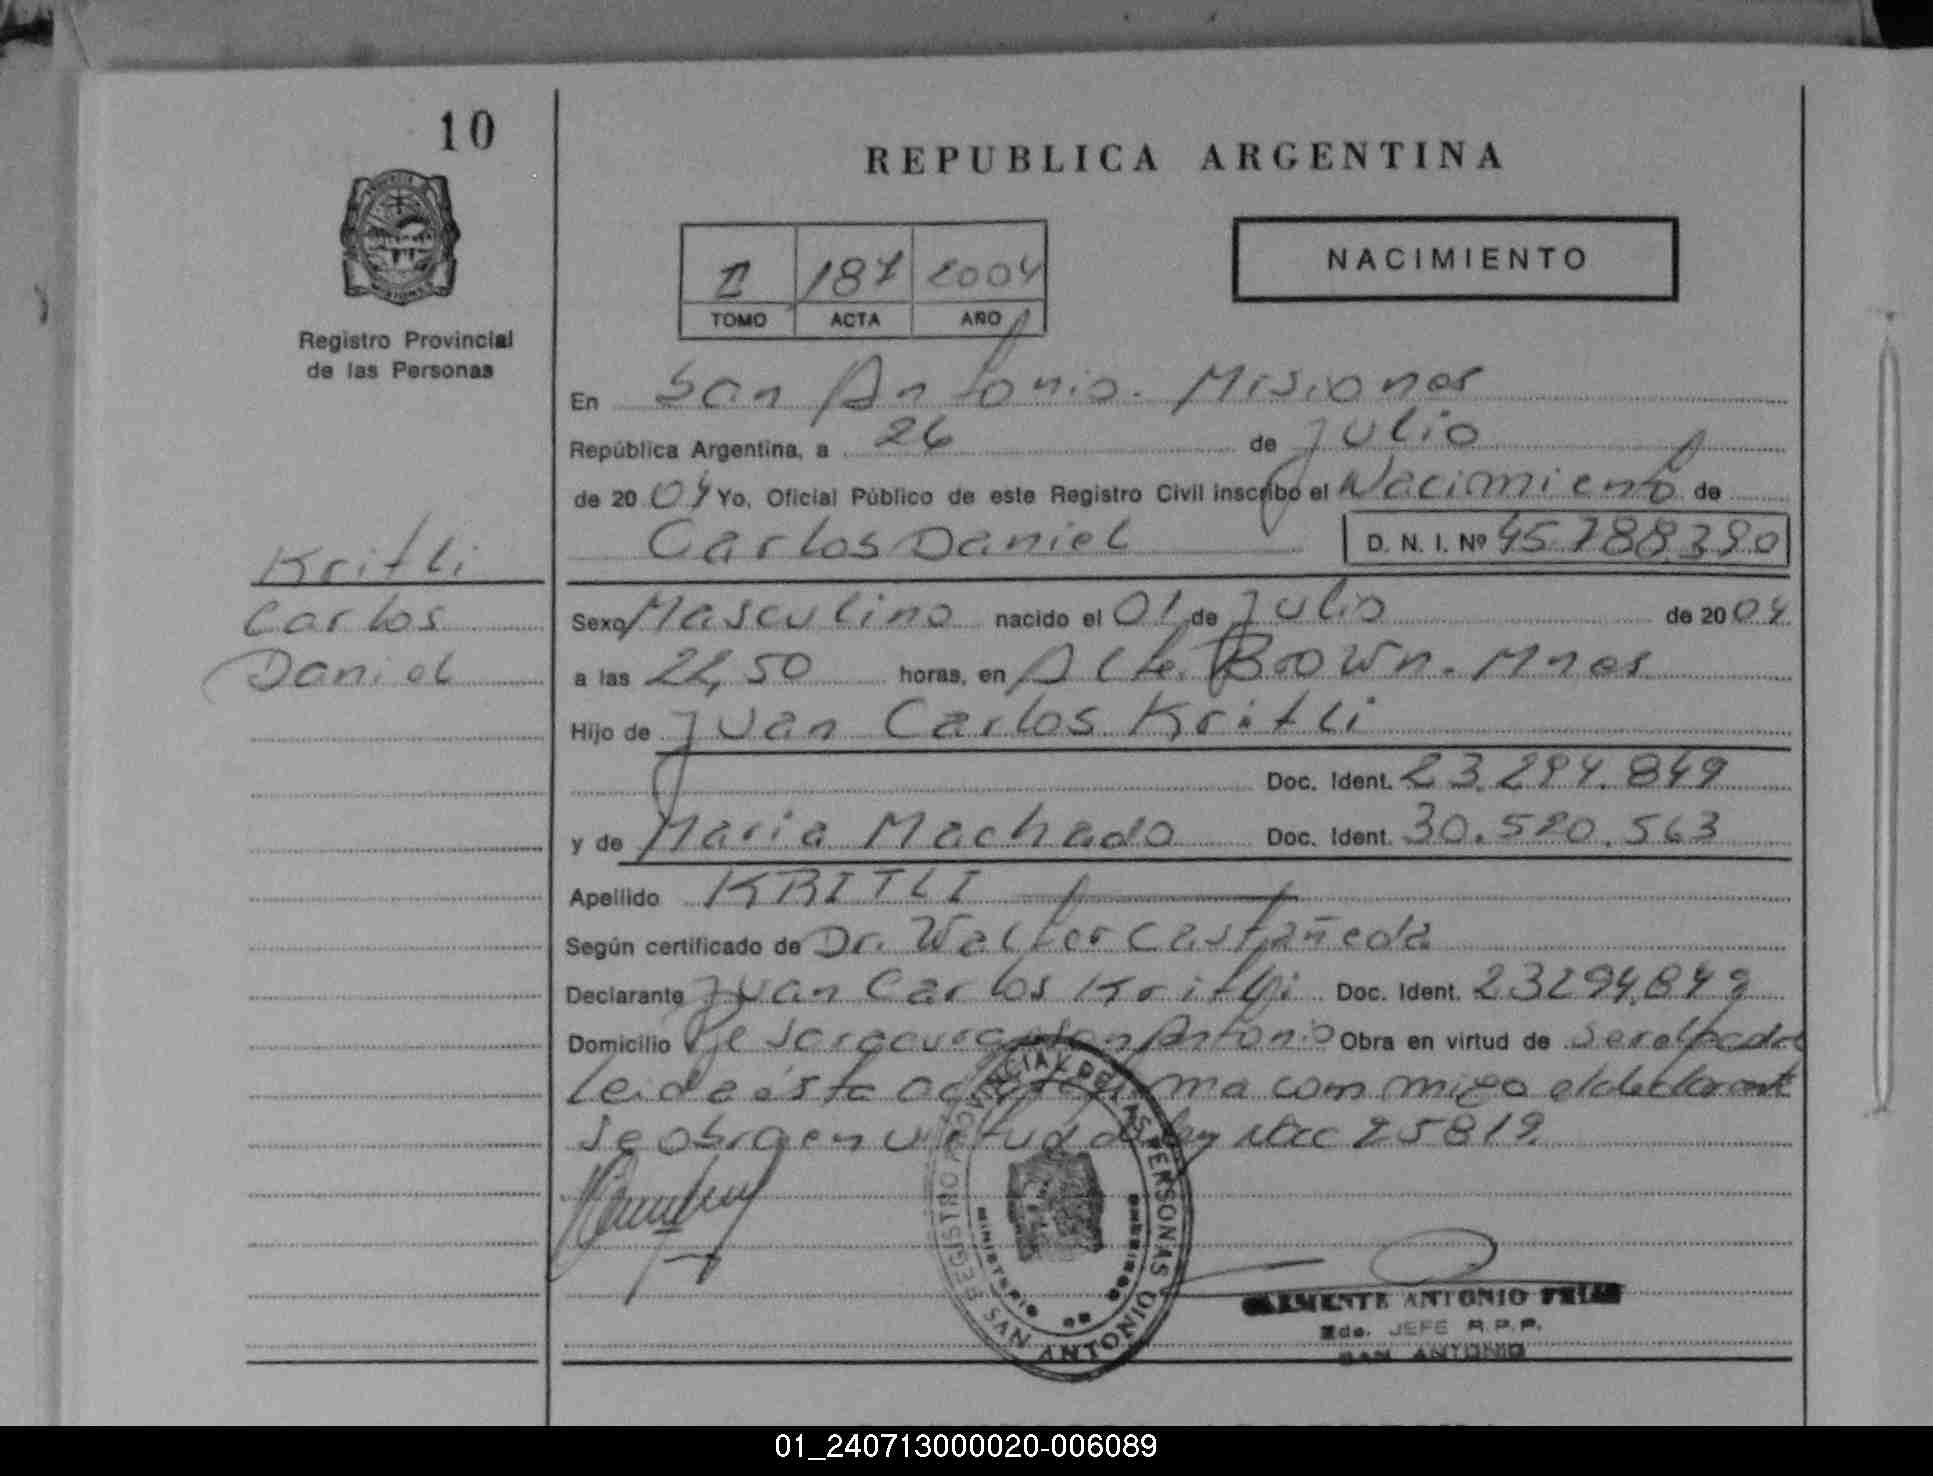 10
REPUBLICA ARGENTINA
NACIMIENTO
II 187 2004
TOMO ACTA AÑO
Registro Provincial
de las Personas
En San Antonio. Misiones
República Argentina, a 26 de Julio
de 2004 Yo, Oficial Público de este Registro Civil inscribo el Nacimiento de
Carlos Daniel D. N. I. Nº 45.788.390
Kritli
Carlos
Daniel
Sexo Masculino nacido el 01 de Julio de 2004
a las 22,50 horas, en Alte. Brown. Mnes
Hijo de Juan Carlos Kritli
Doc. Ident. 23.294.849
y de Maria Machado Doc. Ident. 30.520.563
Apellido KRITLI
Según certificado de Dr. Walter Castañeda
Declarante Juan Carlos Kritli Doc. Ident. 23294.849
Domicilio San Antonio Obra en virtud de ser el padre
leida ésta acta firma commigo el declarante
se obra en virtud de ley 25819
REGISTRO PROVINCIAL DE LAS PERSONAS
MINISTERIO
SAN ANTONIO
CLEMENTE ANTONIO
2do. JEFE R.P.P.
SAN ANTONIO
01_240713000020-006089